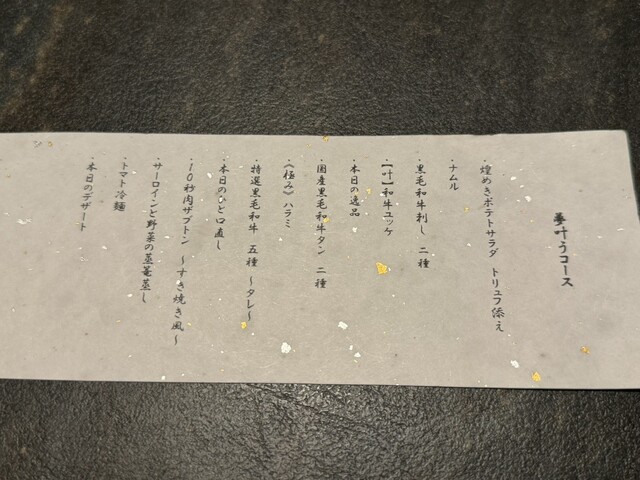 夢叶うコース
・煌めきポテトサラダ トリュフ添え
・ナムル
・黒毛和牛刺し 二種
・【叶】和牛ユッケ
・本日の逸品
・国産黒毛和牛タン 二種
・《極み》ハラミ
・特選黒毛和牛 五種 〜タレ〜
・本日のひと口直し
・10秒肉ザブトン 〜すき焼き風〜
・サーロインと野菜の蒸篭蒸し
・トマト冷麺
・本日のデザート